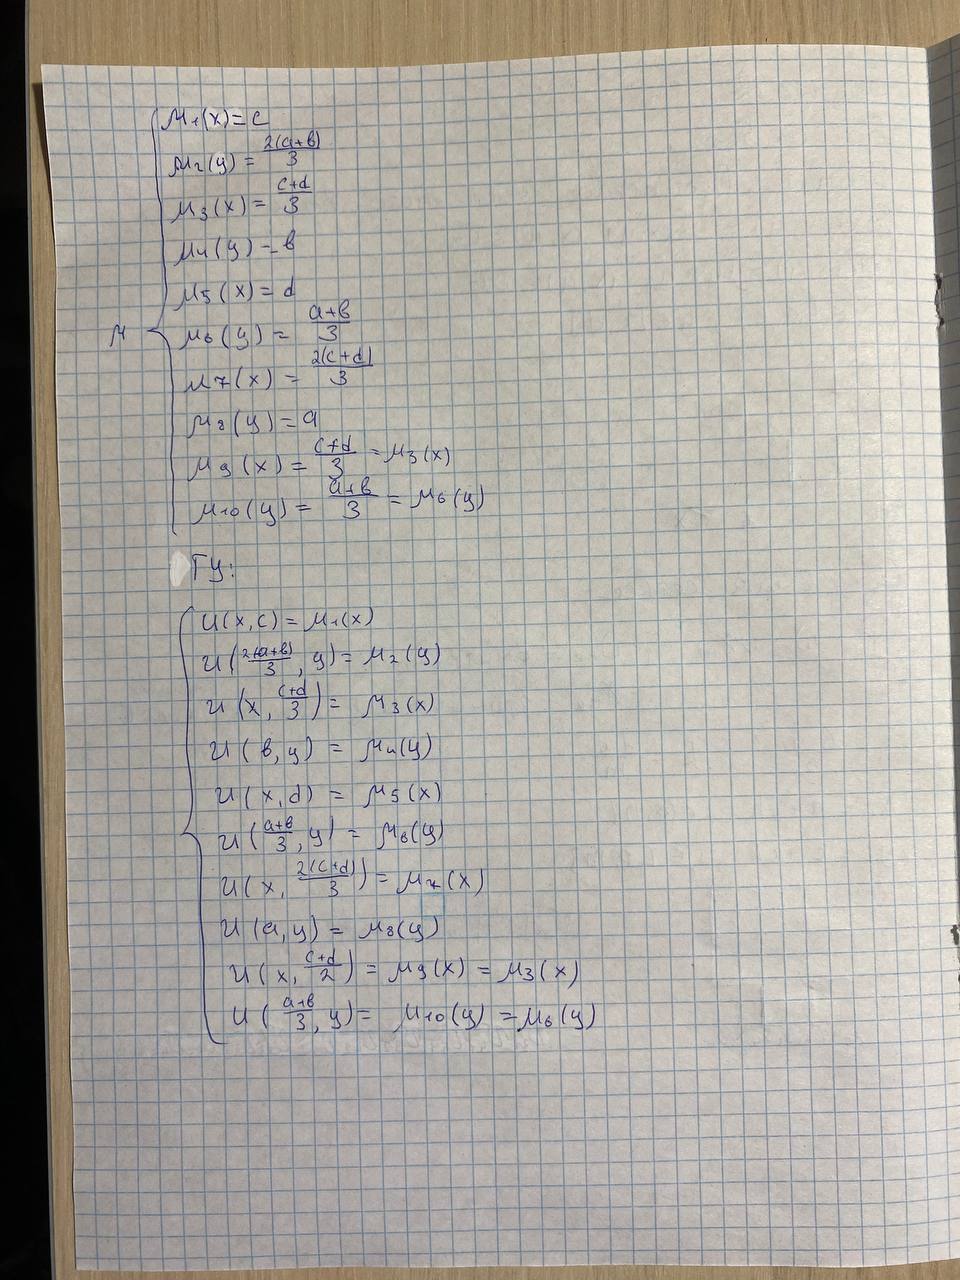 μ
μ₁(x) = c
μ₂(y) = 2(a+b)/3
μ₃(x) = (c+d)/3
μ₄(y) = b
μ₅(x) = d
μ₆(y) = (a+b)/3
μ₇(x) = 2(c+d)/3
μ₈(y) = a
μ₉(x) = (c+d)/3 = μ₃(x)
μ₁₀(y) = (a+b)/3 = μ₆(y)
ГУ:
u(x, c) = μ₁(x)
u(2(a+b)/3, y) = μ₂(y)
u(x, (c+d)/3) = μ₃(x)
u(b, y) = μ₄(y)
u(x, d) = μ₅(x)
u((a+b)/3, y) = μ₆(y)
u(x, 2(c+d)/3) = μ₇(x)
u(a, y) = μ₈(y)
u(x, (c+d)/2) = μ₉(x) = μ₃(x)
u((a+b)/3, y) = μ₁₀(y) = μ₆(y)